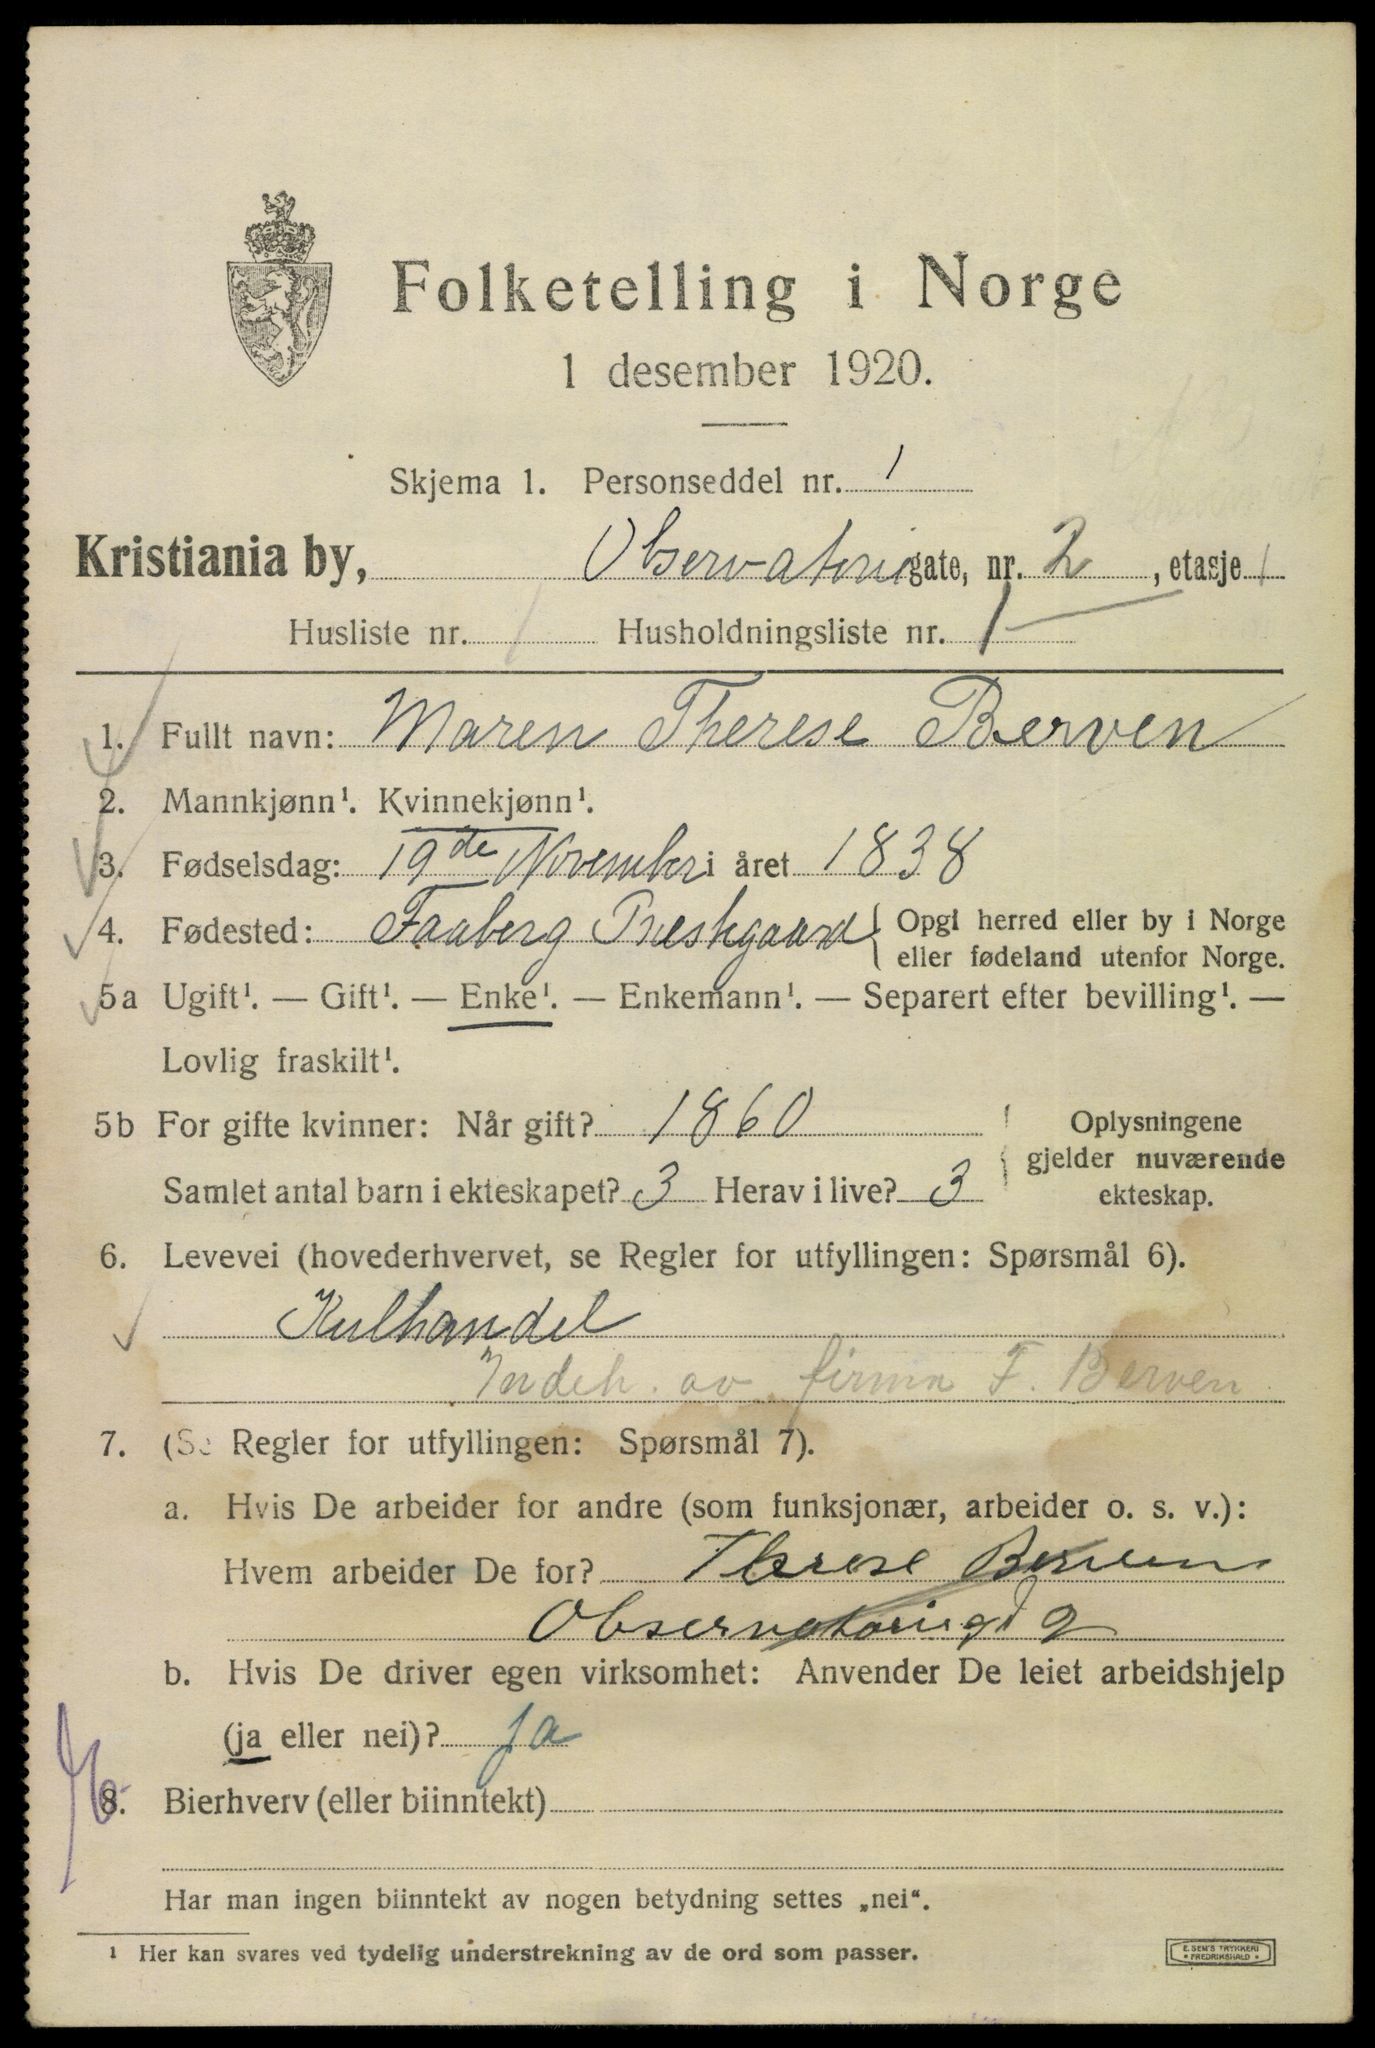 Folketelling i Norge
1 desember 1920.
Skjema 1. Personseddel nr. 1
Kristiania by, Observatoriegate, nr. 2, etasje 1
Husliste nr. 1 Husholdningsliste nr. 1
1. Fullt navn: Maren Therese Berven
2. Mannkjønn¹. Kvinnekjønn¹.
3. Fødselsdag: 19de November i året 1838
4. Fødested: Faaberg Prestgaard { Opgi herred eller by i Norge
eller fødeland utenfor Norge.
5a Ugift¹. — Gift¹. — Enke¹. — Enkemann¹. — Separert efter bevilling¹. —
Lovlig fraskilt¹.
5b For gifte kvinner: Når gift? 1860
Samlet antal barn i ekteskapet? 3 Herav i live? 3
Oplysningene
gjelder nuværende
ekteskap.
6. Levevei (hovederhvervet, se Regler for utfyllingen: Spørsmål 6).
Kulhandel
Indeh. av firma F. Berven
7. (Se Regler for utfyllingen: Spørsmål 7).
a. Hvis De arbeider for andre (som funksjonær, arbeider o. s. v.):
Hvem arbeider De for? Therese Berven
Observatoriegt 2
b. Hvis De driver egen virksomhet: Anvender De leiet arbeidshjelp
(ja eller nei)? ja
8. Bierhverv (eller biinntekt)
Har man ingen biinntekt av nogen betydning settes „nei“.
¹ Her kan svares ved tydelig understrekning av de ord som passer.
E. SEM'S TRYKKERI
• FREDRIKSHALD •